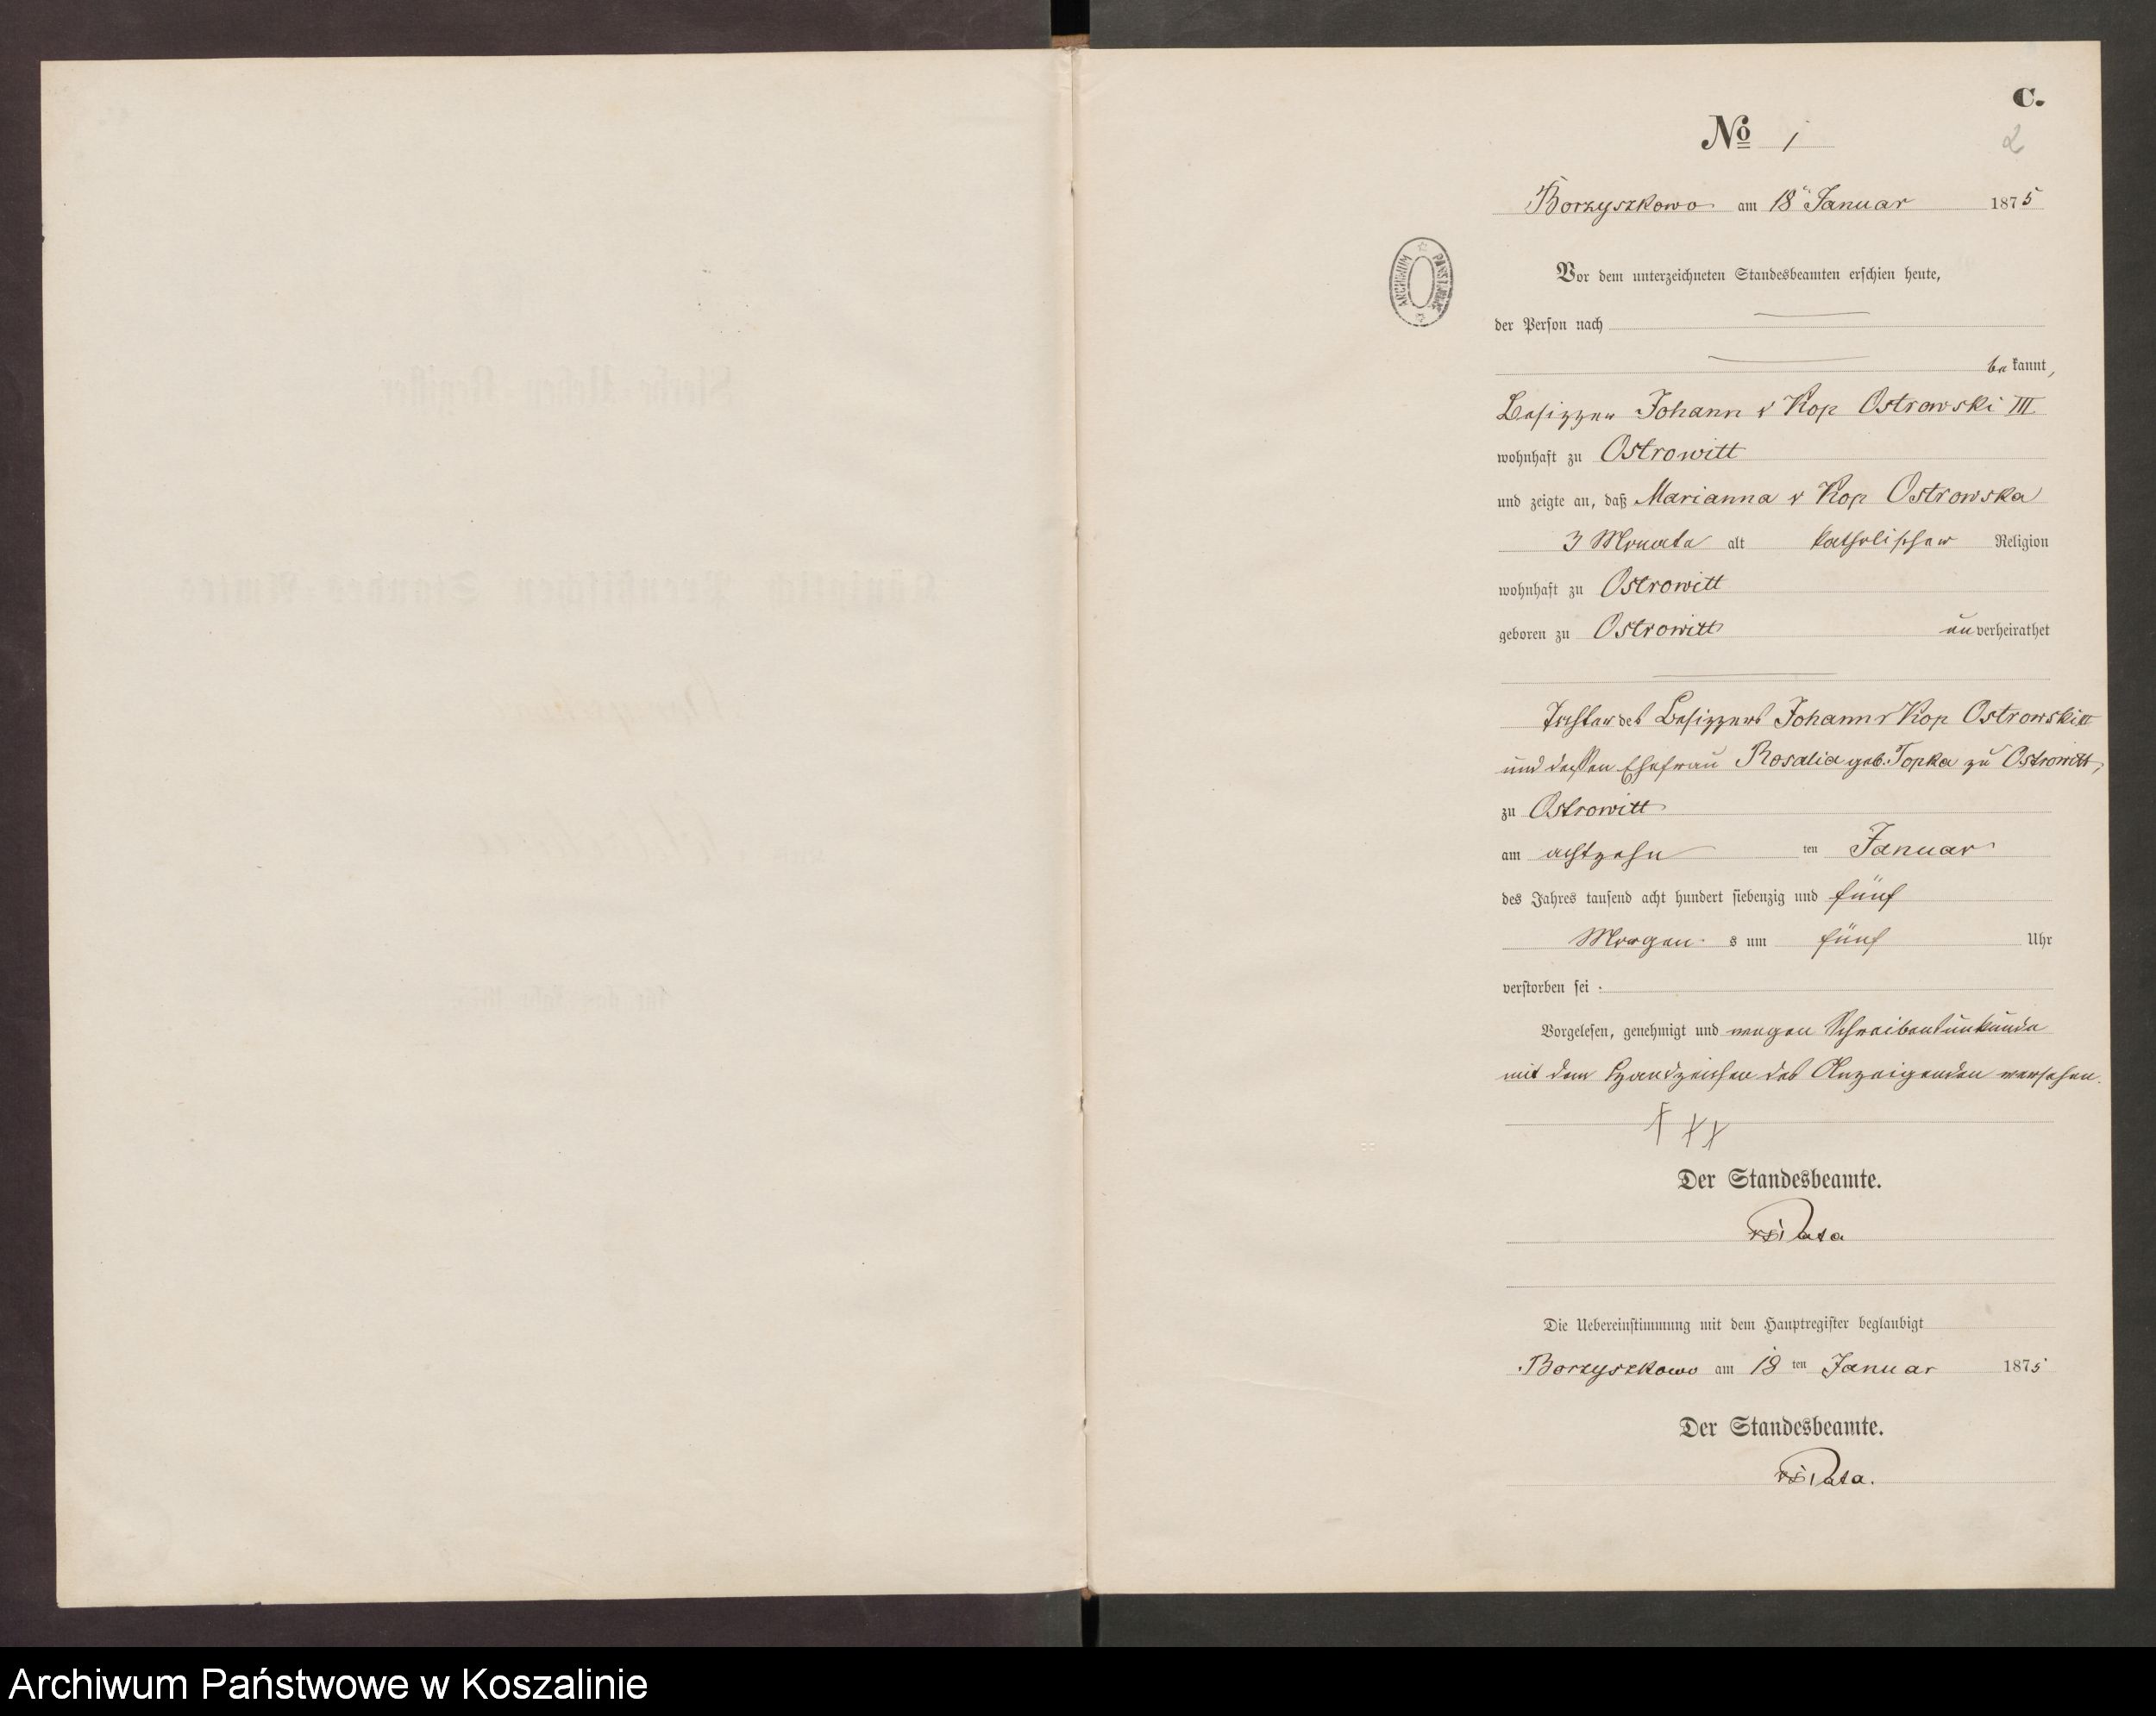 C.
No 1
2
Borzyszkowo am 18 Januar 1875
ARCHIWUM PAŃSTWOWE
Vor dem unterzeichneten Standesbeamten erschien heute,
der Person nach
be kannt,
Besitzer Johann v Kop Ostrowski III
wohnhaft zu Ostrowitt
und zeigte an, daß Marianna v Kop Ostrowska
3 Monate alt katholischer Religion
wohnhaft zu Ostrowitt
geboren zu Ostrowitt unverheirathet
Tochter des Besitzers Johann v Kop Ostrowski III
und dessen Ehefrau Rosalia geb. Topka zu Ostrowitt,
zu Ostrowitt
am achtzehn ten Januar
des Jahres tausend acht hundert siebenzig und fünf
Morgen s um fünf Uhr
verstorben sei.
Vorgelesen, genehmigt und wegen Schreibensunkunde
mit dem Handzeichen des Anzeigenden versehen.
+++
Der Standesbeamte.
Die Uebereinstimmung mit dem Hauptregister beglaubigt
Borzyszkowo am 18 ten Januar 1875
Der Standesbeamte.
Archiwum Państwowe w Koszalinie